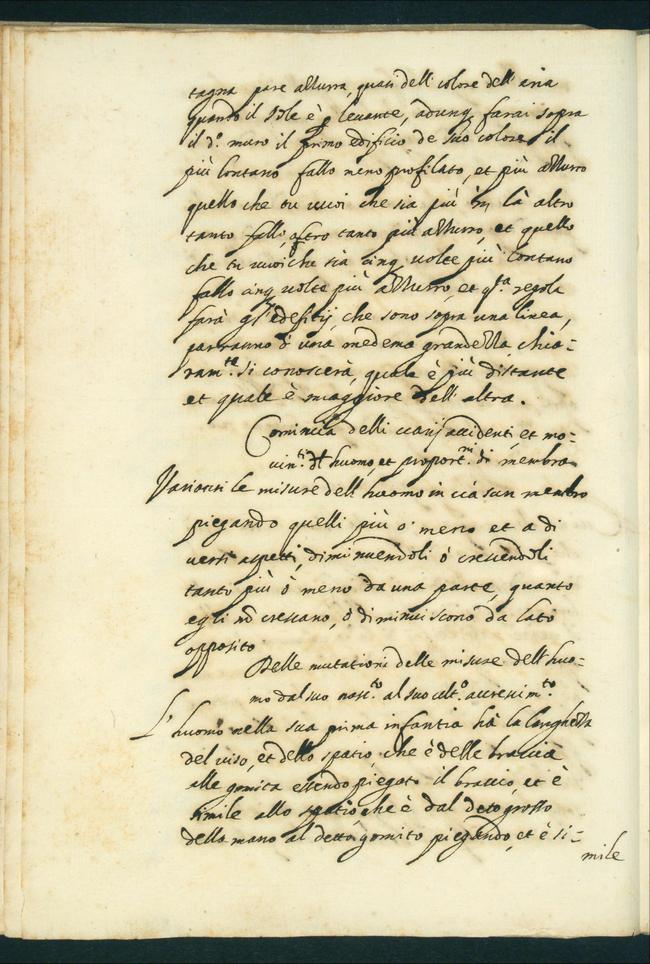 tagna pare azzurra, quasi dell colore dell'aria
quando il Sole è p levante, adunq farai sopra
il d.º muro il primo edificio de suo colore il
più lontano fallo meno profilato, et più azzurro
quello che tu vuoi che sia più in là altro
tanto fallo, altro tanto più azzurro, et quello
che tu vuoi che sia cinq volte più lontano
fallo cinq volte più azzurro, et q.ta regola
farà gl'edefitij, che sono sopra una linea,
parranno d'una medema grandezza, chia=
ram.te si conoscerà, quale è più distante
et quale è maggiore dell'altra.
Comincia delli varij accidenti, et mo=
vim.ti dl huomo, et proport.ni di membra
Variansi le misure dell huomo in ciasun membro
piegando quelli più o' meno et a di
versi aspetti, diminuendoli ò crescendoli
tanto più ò meno da una parte, quanto
egli nō crescano, ò diminuiscono da lato
opposito
Delle mutationi delle misure dell huo=
mo dal suo nasc.to al suo ult.º accrescim.to
L'huomo nella sua prima infantia hà la larghezza
del viso, et dello spatio, che è delle braccia
alle gomita essendo piegato il braccio, et è
simile allo spatio che è dal deto grosso
della mano al detto gomito piegando, et è si=
mile